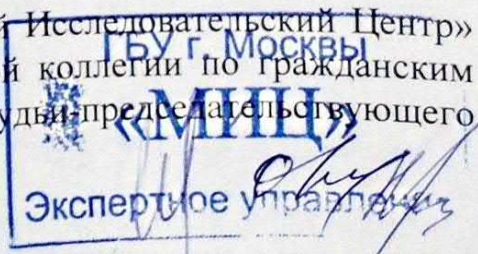 й Исследовательский Центр»
ГБУ г. Москвы
й коллегии по гражданским
удьи-председательствующего
«МИЦ»
Экспертное управление